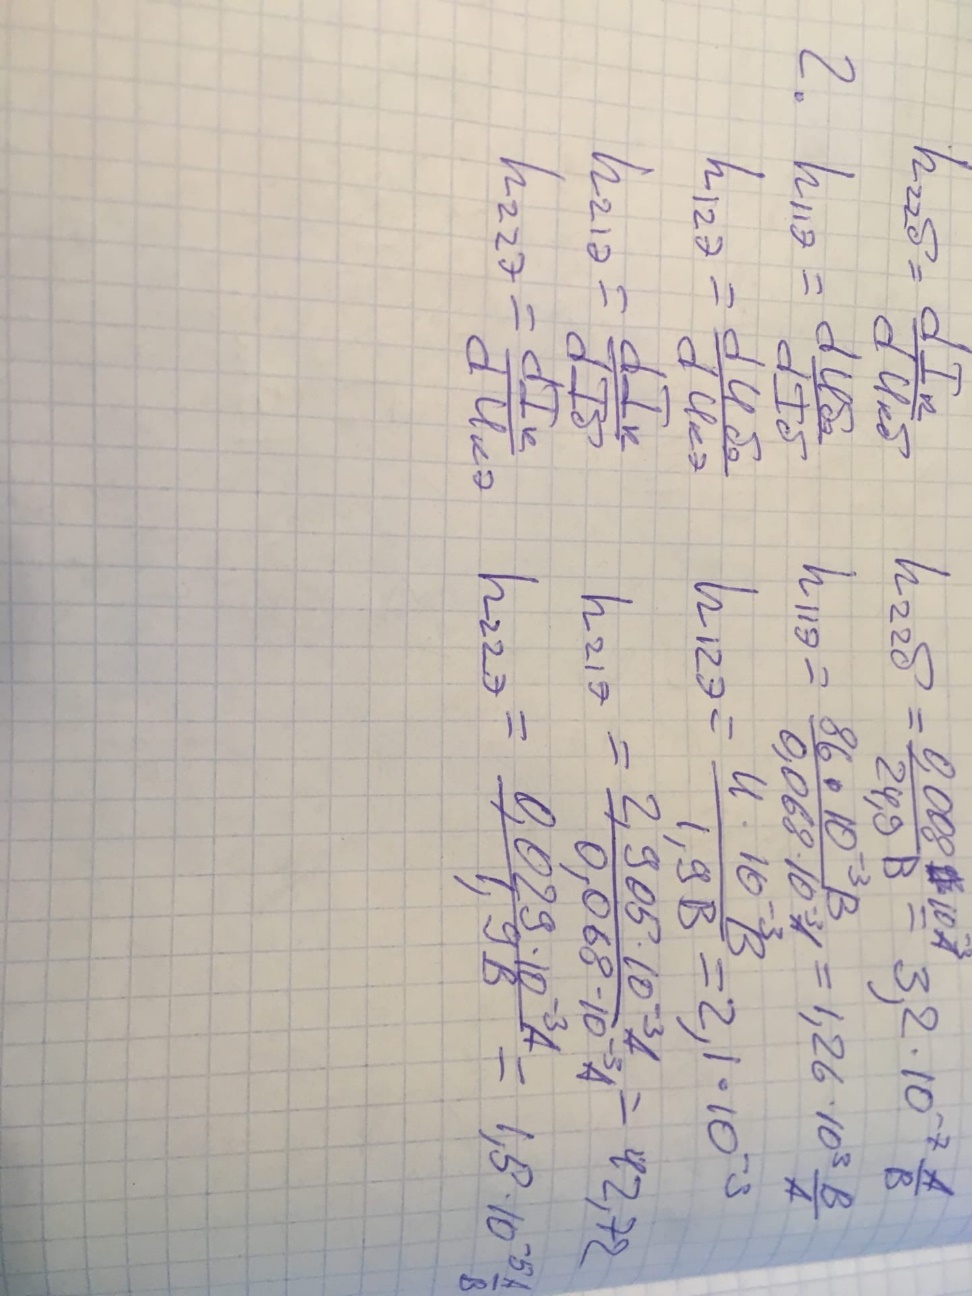 h₂₂б = dIк / dUкб   h₂₂б = 0,008·10⁻³A / 24,9 В = 3,2·10⁻⁷ A/В
2. h₁₁э = dUбэ / dIб   h₁₁э = 86·10⁻³В / 0,068·10⁻³A = 1,26·10³ В/A
h₁₂э = dUбэ / dUкэ   h₁₂э = 4·10⁻³В / 1,9В = 2,1·10⁻³
h₂₁э = dIк / dIб   h₂₁э = 2,905·10⁻³A / 0,068·10⁻³A = 42,72
h₂₂э = dIк / dUкэ   h₂₂э = 0,029·10⁻³A / 1,9В = 1,5·10⁻⁵ A/В